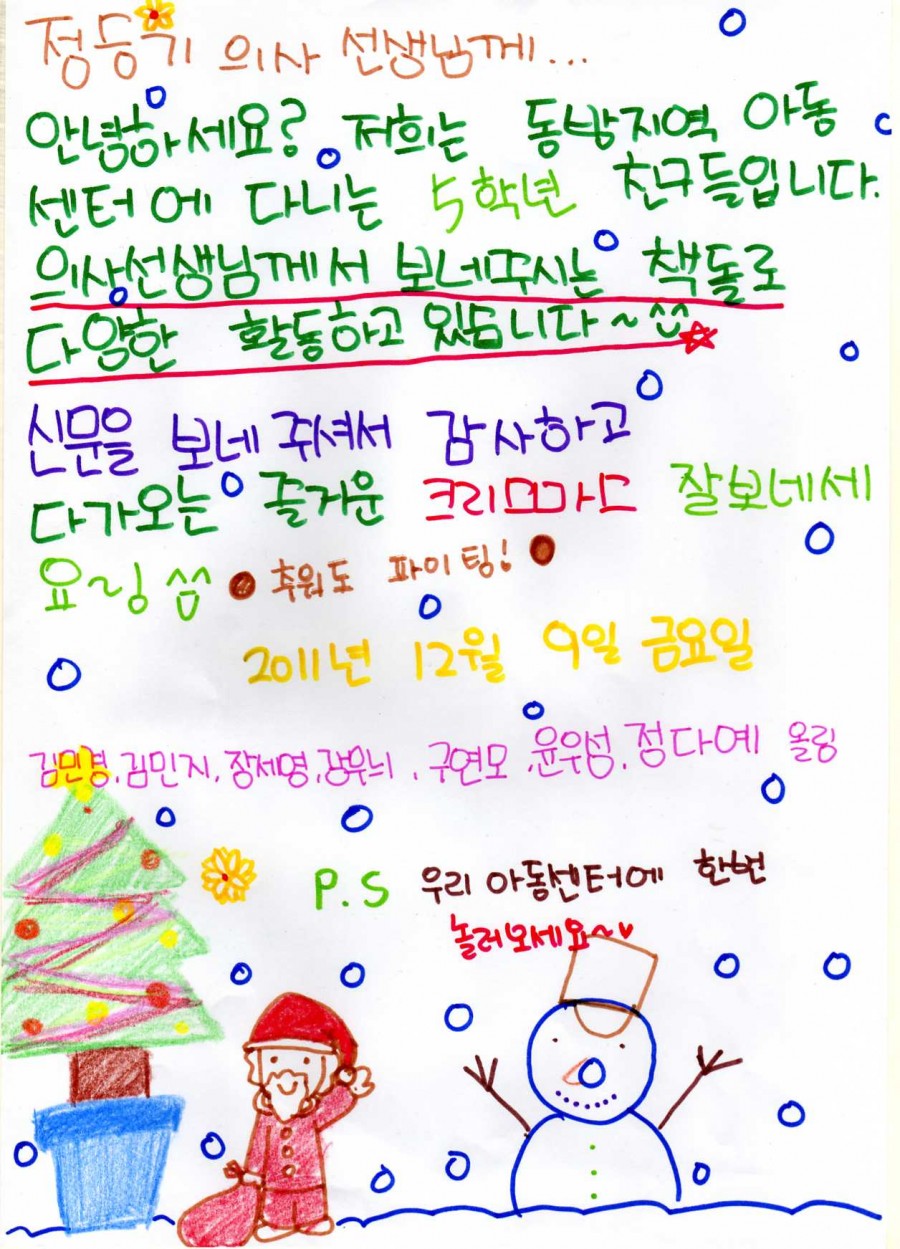 정등기 의사 선생님께...
안녕하세요? 저희는 동방지역 아동
센터에 다니는 5학년 친구들입니다.
의사선생님께서 보네주시는 책돌로
다양한 활동하고 있습니다~^^
신문을 보네 주셔서 감사하고
다가오는 즐거운 크리스마스 잘보네세
요~링 ^^ 추워도 파이팅!
2011년 12월 9일 금요일
김민경, 김민지, 장제영, , 구연모, 윤우성, 정다예 올림
P.S 우리 아동센터에 한번
놀러오세요~♥